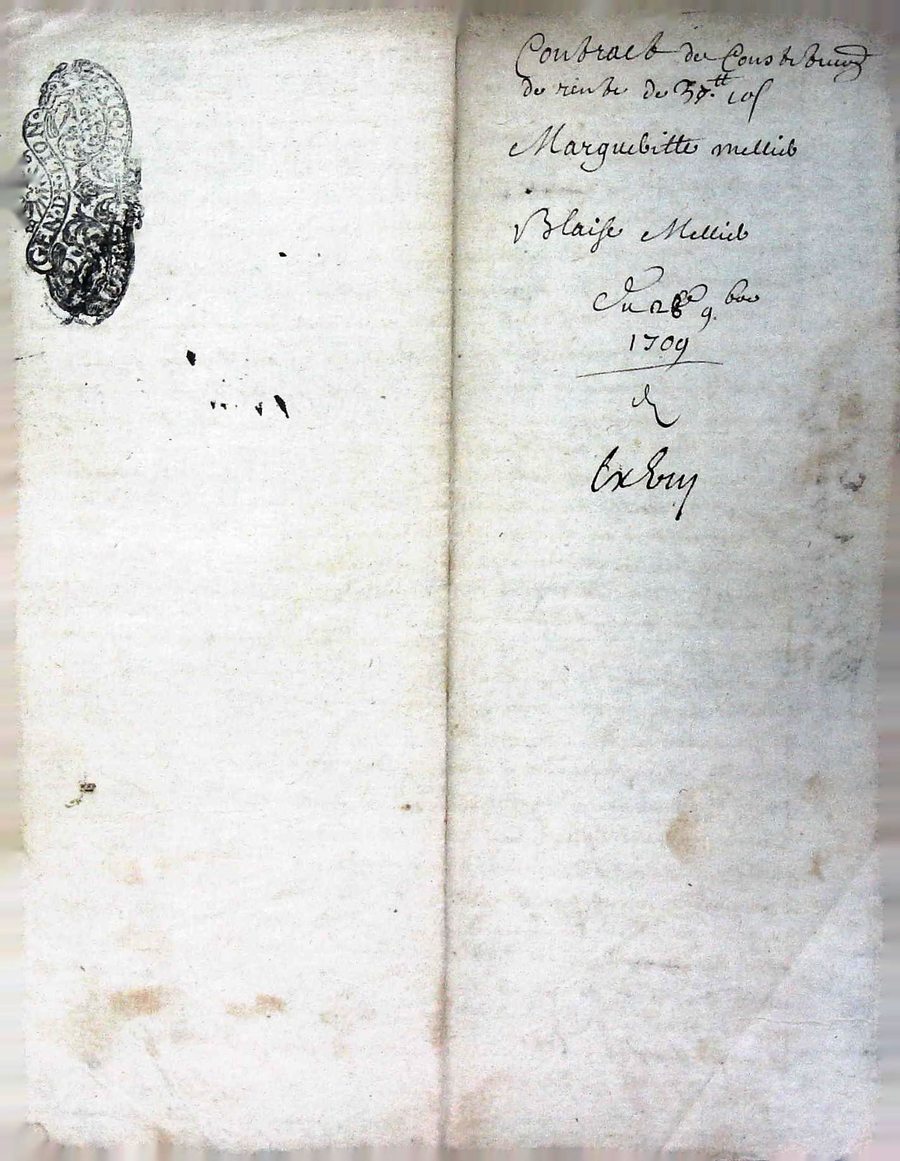 GEN. D
ION
Contract de Constitution
de rente de 37.tt 10s
Marguebitte Mellieb
Blaise Mellieb
Du 28e 9.bre
1709